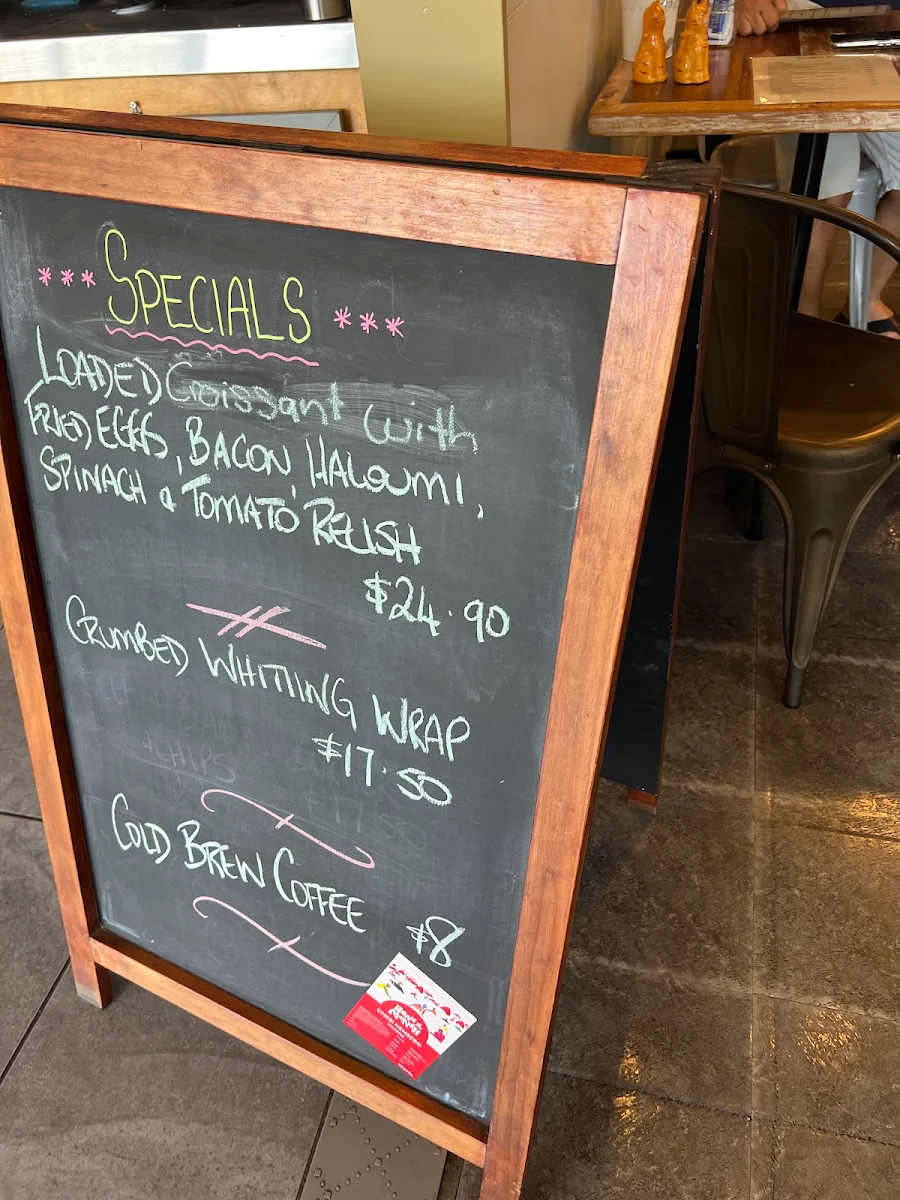 *** SPECIALS ***
LOADED Croissant with
FRIED EGGS, BACON, HALOUMI,
SPINACH & TOMATO RELISH
$24.90
CRUMBED WHITING WRAP
$17.50
CHIPS
COLD BREW COFFEE
$8